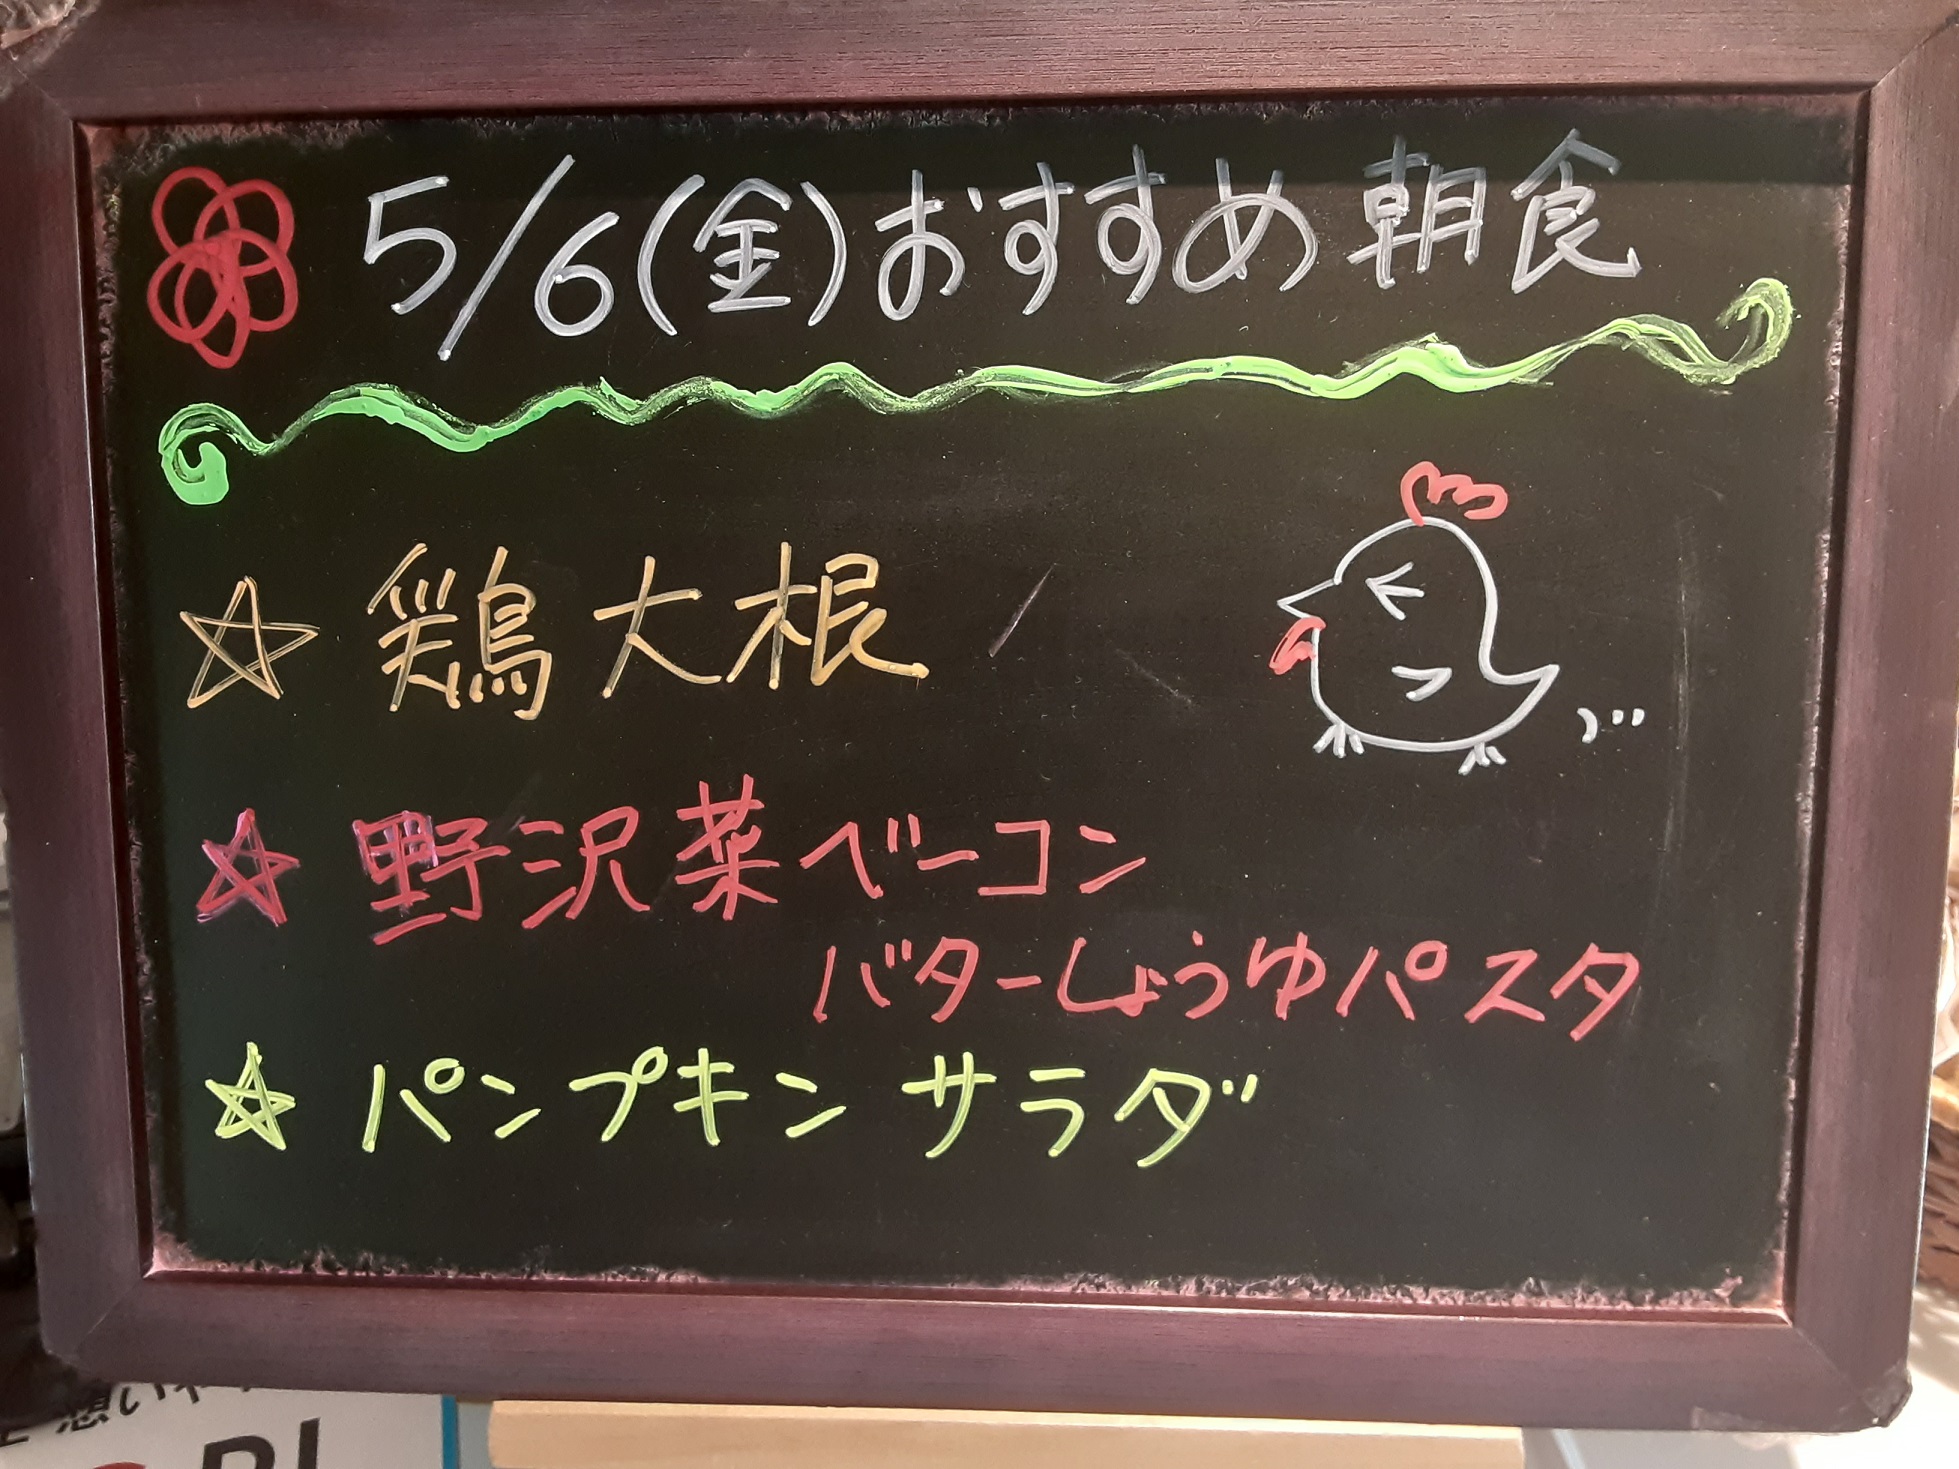 5/6(金)おすすめ朝食
☆ 鶏大根
☆ 野沢菜ベーコン
バターしょうゆパスタ
☆ パンプキンサラダ
想いや